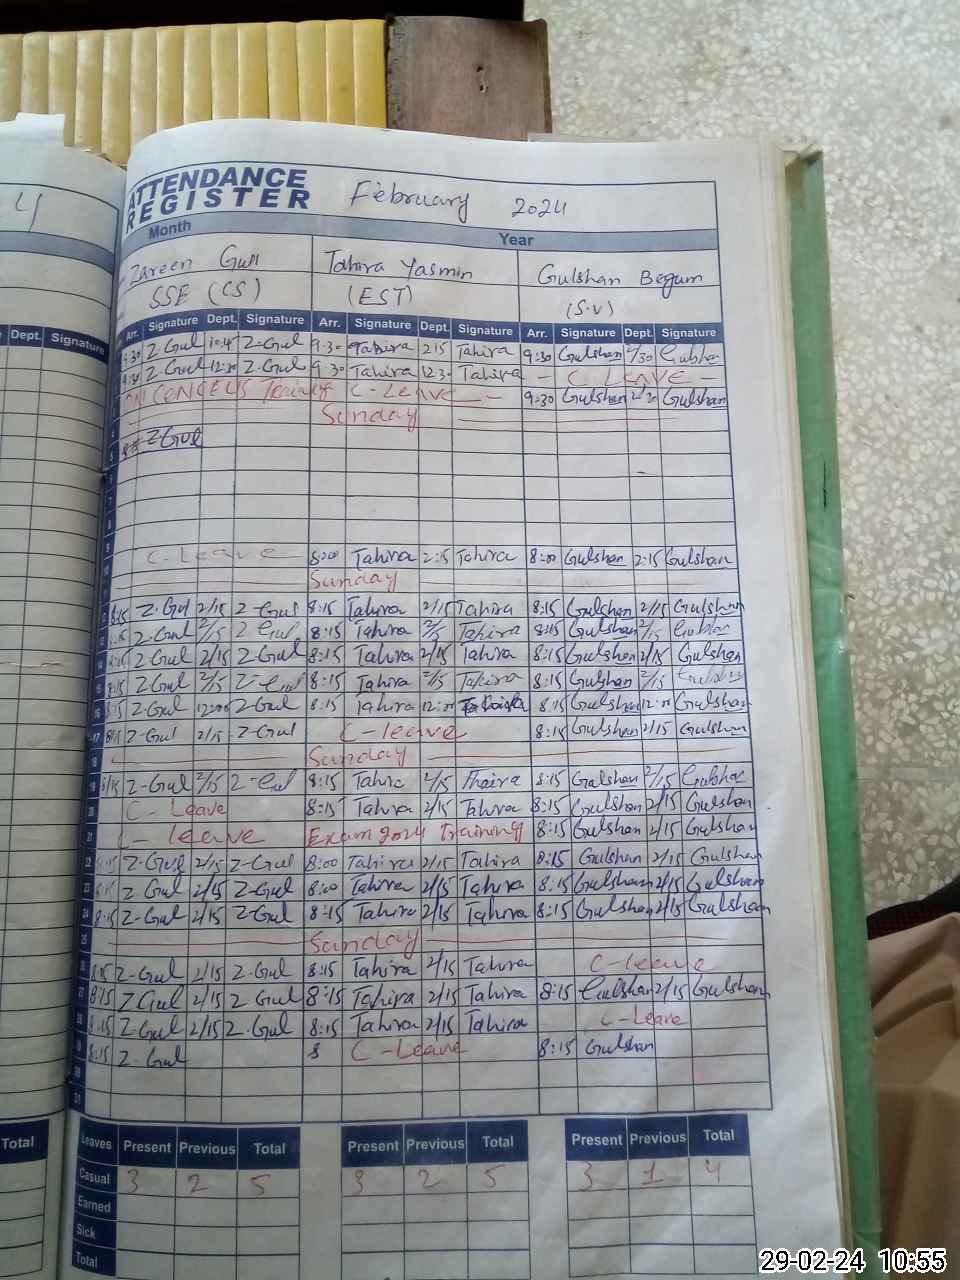 4
ATTENDANCE
REGISTER February 2024
Month Year
Zareen Gull Tahira Yasmin Gulshan Begum
SSE (CS) (EST) (S.V)
Dept. Signature Arr. Signature Dept. Signature Arr. Signature Dept. Signature Arr. Signature Dept. Signature
9:30 Z-Gul Z-Gul 9:30 Tahira 2:15 Tahira 9:30 Gulshan 2/30 Gulshan
9:30 Z-Gul 12:30 Z-Gul 9 30 Tahira 12 30 Tahira - C-LEAVE -
C-Leave 9:30 Gulshan Gulshan
Sunday
Z-Gul
7
8
9
10 C-Leave 8:00 Tahira 2:15 Tahira 8:00 Gulshan 2:15 Gulshan
Sunday
12 8:15 Z-Gul 2/15 Z-Gul 8:15 Tahira 2/15 Tahira 8:15 Gulshan 2/15 Gulshan
13 8:15 Z-Gul 2/15 Z-Gul 8:15 Tahira 2/15 Tahira 8:15 Gulshan 2/15 Gulshan
14 8:15 Z-Gul 2/15 Z-Gul 8:15 Tahira 2/15 Tahira 8:15 Gulshan 2/15 Gulshan
15 8:15 Z-Gul 2/15 Z-Gul 8:15 Tahira 2/15 Tahira 8:15 Gulshan 2/15 Gulshan
16 8:15 Z-Gul 12:00 Z-Gul 8:15 Tahira 12:00 8:15 Gulshan 12:00 Gulshan
17 8:15 Z-Gul 2/15 Z-Gul C-leave 8:15 Gulshan 2/15 Gulshan
18 Sunday
19 8/15 Z-Gul 2/15 Z-Gul 8:15 Tahir 2/15 Thaira 8:15 Gulshan 2/15 Gulshan
20 C-Leave 8:15 Tahira 2/15 Tahira 8:15 Gulshan 2/15 Gulshan
21 C-leave Exam 2024 Training 8:15 Gulshan 2/15 Gulshan
22 8:15 Z-Gul 2/15 Z-Gul 8:00 Tahira 2/15 Tahira 8:15 Gulshan 2/15 Gulshan
23 8:15 Z Gul 2/15 Z-Gul 8:00 Tahira 2/15 Tahira 8:15 Gulshan 2/15 Gulshan
24 8:15 Z-Gul 2/15 Z-Gul 8:15 Tahira 2/15 Tahira 8:15 Gulshan 2/15 Gulshan
25 Sunday
26 8:15 Z-Gul 2/15 Z.Gul 8:15 Tahira 2/15 Tahira C-leave
27 8:15 Z Gul 2/15 Z Gul 8:15 Tahira 2/15 Tahira 8:15 Gulshan 2/15 Gulshan
28 8:15 Z-Gul 2/15 Z-Gul 8:15 Tahira 2/15 Tahira C-Leave
29 8:15 Z-Gul 8 C-Leave 8:15 Gulshan
30
31
Total Leaves Present Previous Total Present Previous Total Present Previous Total
Casual 3 2 5 3 2 5 3 1 4
Earned
Sick
Total
29-02-24 10:55